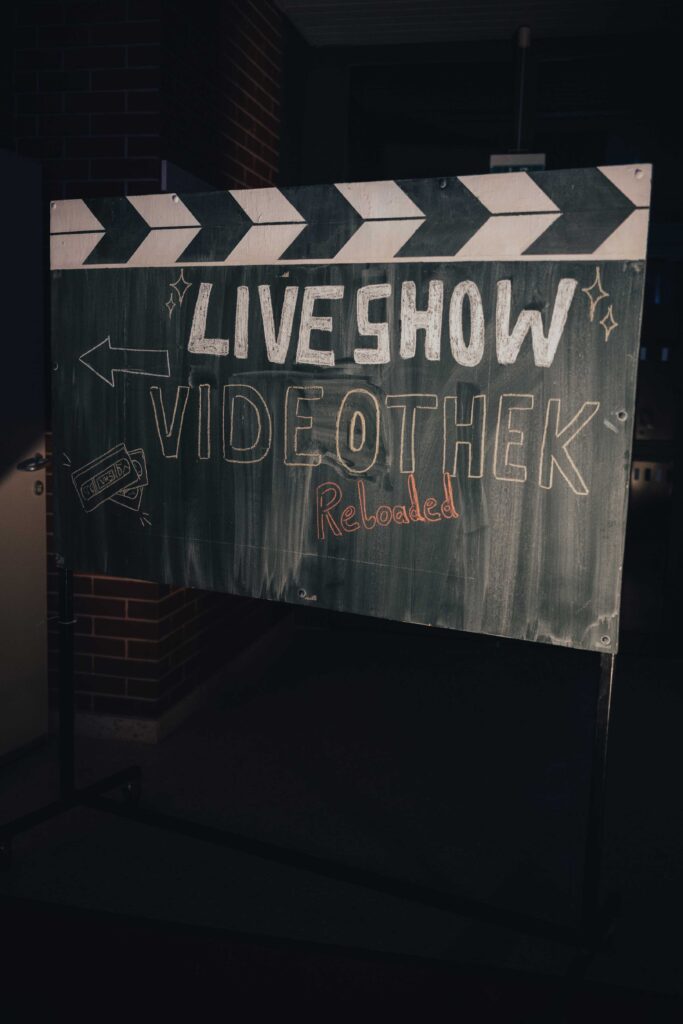 LIVE SHOW
VIDEOTHEK
Reloaded